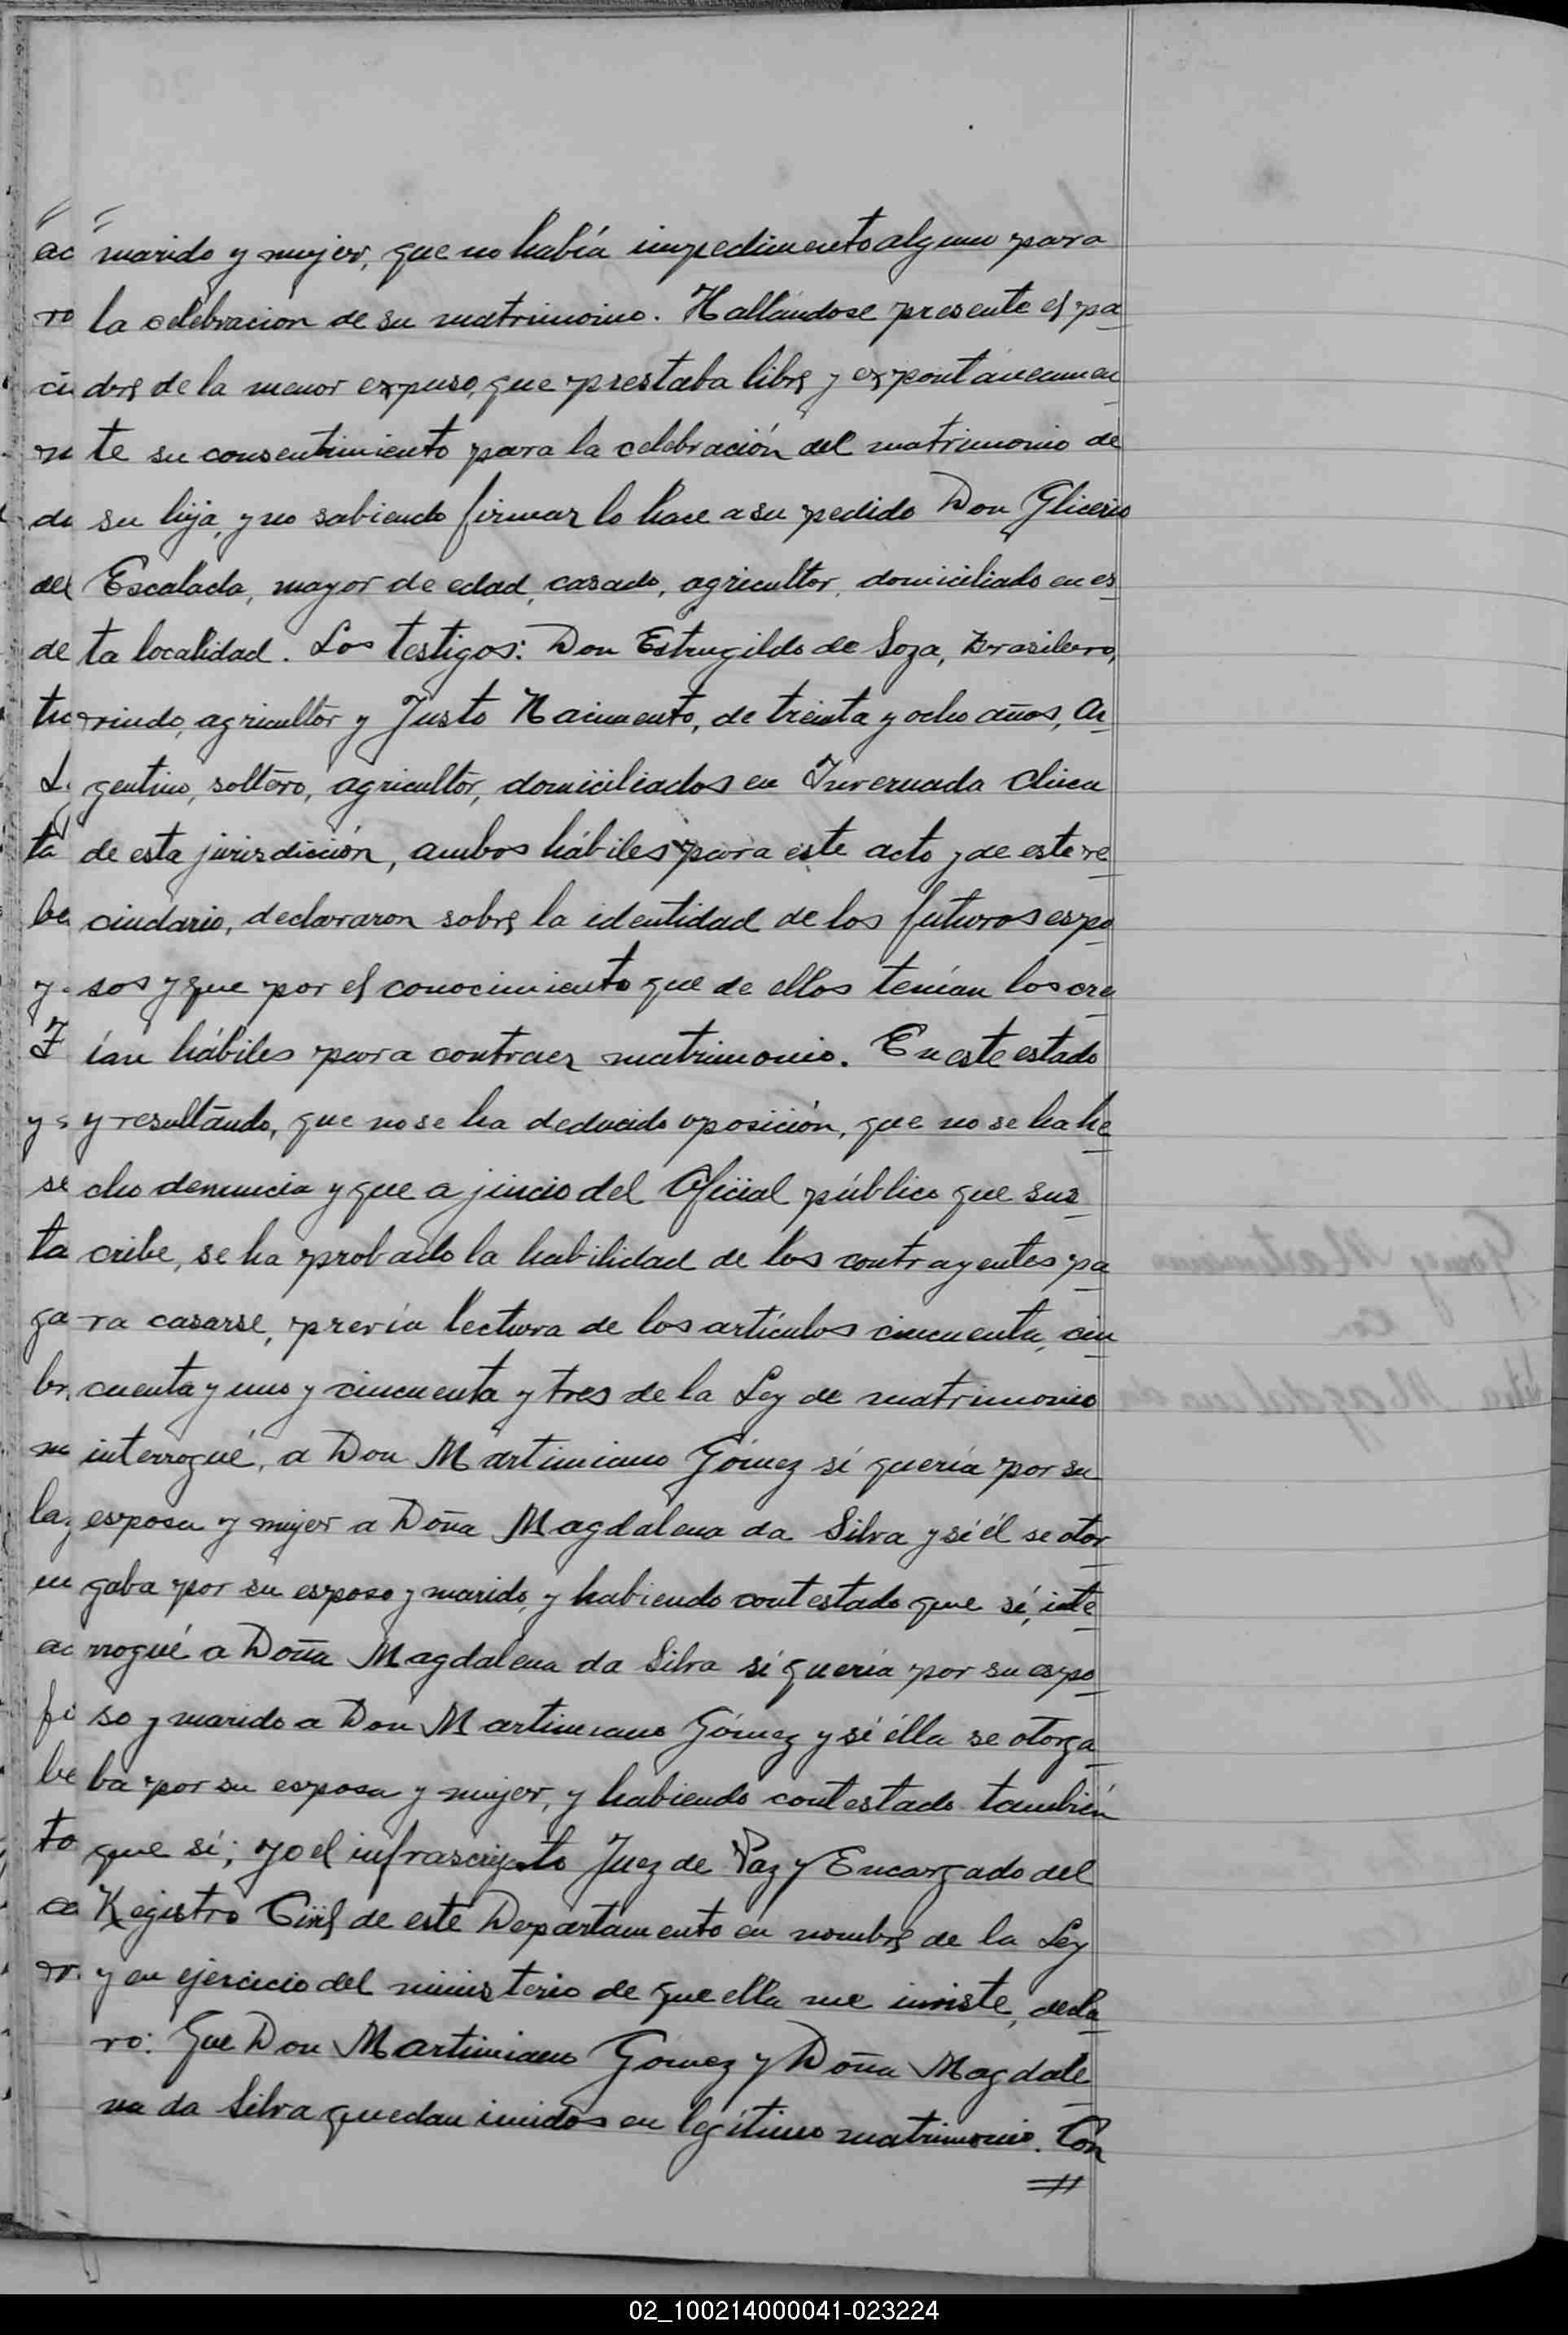 marido y mujer, que no había impedimento alguno para
la celebracion de su matrimonio. Hallándose presente el pa
dre de la menor expuso, que prestaba libre y expontáneamen
te su consentimiento para la celebración del matrimonio de
su hija, y no sabiendo firmar lo hace a su pedido Don Glicerio
Escalada, mayor de edad, casado, agricultor, domiciliado en es
ta localidad. Los testigos: Don Estrugildo de Soza, Brasilero,
agricultor y Justo Nacimento, de treinta y ocho años, Ar
gentino, soltero, agricultor, domiciliados en Invernada Chica
de esta jurisdicción, ambos hábiles para este acto y de este ve
cindario, declararon sobre la identidad de los futuros espo
sos y que por el conocimiento que de ellos tenían los cre
ían hábiles para contraer matrimonio. En este estado
y resultando, que no se ha deducido oposición, que no se ha he
cho denuncia y que a juicio del Oficial público que sus
cribe, se ha probado la habilidad de los contrayentes pa
ra casarse, previa lectura de los artículos cincuenta, cin
cuenta y uno y cincuenta y tres de la Ley de matrimonio
interrogué, a Don Martimiano Gómez si quería por su
esposa y mujer a Doña Magdalena da Silva y si él se otor
gaba por su esposo y marido, y habiendo contestado que sí, inte
rrogué a Doña Magdalena da Silva si quería por su espo
so y marido a Don Martimiano Gómez y si élla se otorga
ba por su esposa y mujer, y habiendo contestado también
que sí; yo el infrascripto Juez de Paz y Encargado del
Registro Civil de este Departamento en nombre de la Ley
y en ejercicio del ministerio de que ella me inviste, decla
ro: Que Don Martimiano Gómez y Doña Magdale
na da Silva quedan unidos en legítimo matrimonio. Con
02_100214000041-023224